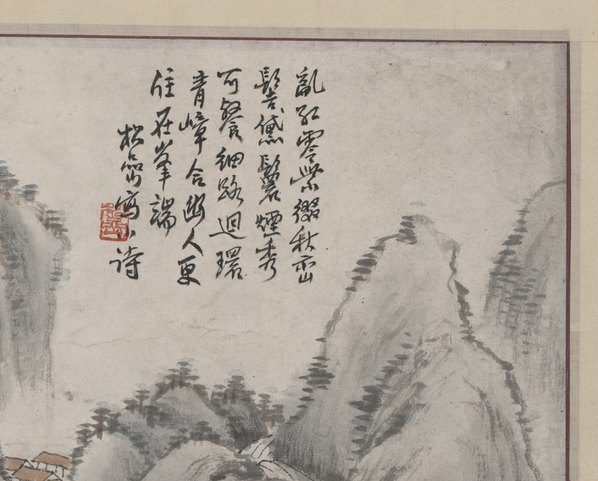 亂紅零紫綴秋巒
髻黛鬟煙秀
可餐細路迴環
青嶂合幽人更
住在峯端
松嵒寫小詩